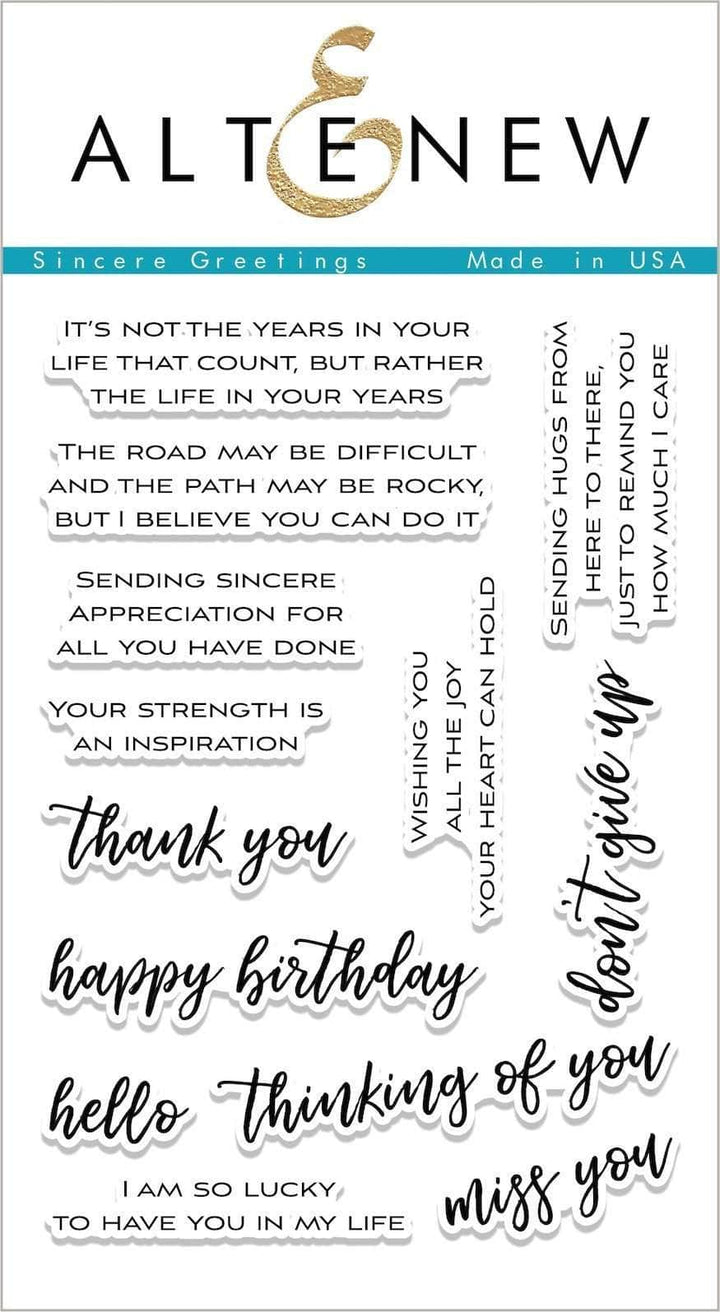 ALTENEW
Sincere Greetings Made in USA
IT'S NOT THE YEARS IN YOUR
LIFE THAT COUNT, BUT RATHER
THE LIFE IN YOUR YEARS
SENDING HUGS FROM
HERE TO THERE,
JUST TO REMIND YOU
HOW MUCH I CARE
THE ROAD MAY BE DIFFICULT
AND THE PATH MAY BE ROCKY,
BUT I BELIEVE YOU CAN DO IT
SENDING SINCERE
APPRECIATION FOR
ALL YOU HAVE DONE
WISHING YOU
ALL THE JOY
YOUR HEART CAN HOLD
don't give up
YOUR STRENGTH IS
AN INSPIRATION
thank you
happy birthday
hello
thinking of you
I AM SO LUCKY
TO HAVE YOU IN MY LIFE
miss you